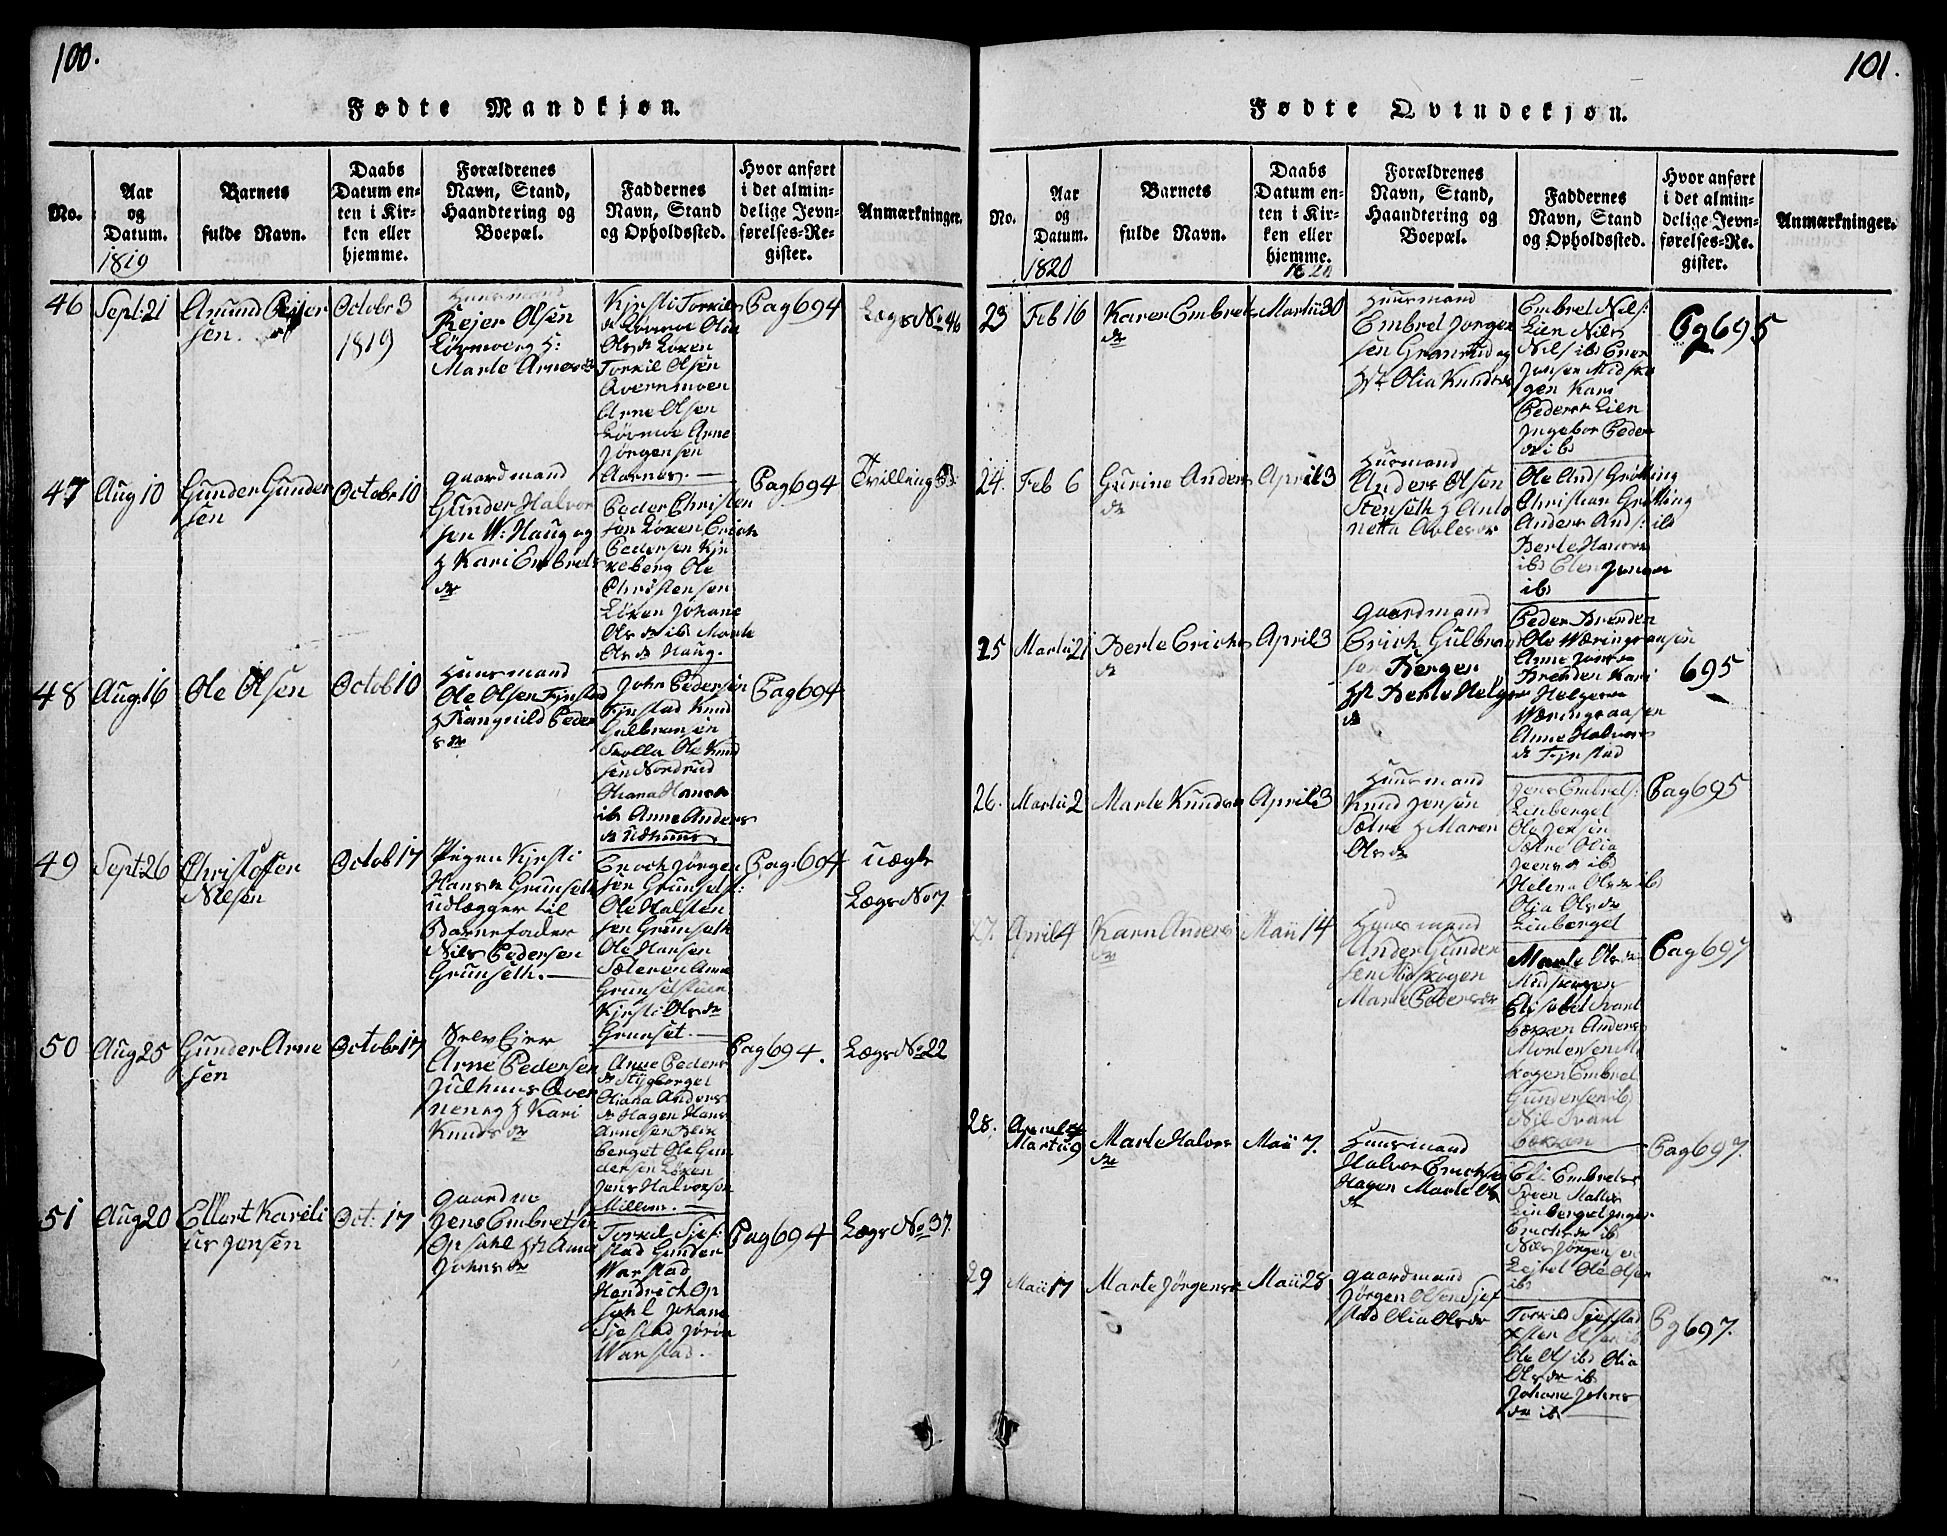 100.
Fødte Mandkjøn.
No.
Aar
og
Datum.
1819
Barnets
fulde Navn.
Daabs
Datum en-
ten i Kir-
ken eller
hjemme.
Forældrenes
Navn, Stand,
Haandtering og
Boepæl.
Faddernes
Navn, Stand
og Opholdssted.
Hvor anført
i det almin-
delige Jevn-
førelses-Re-
gister.
Anmærkninger.
46
Sept: 21
Amund
sen.
Octobr 3
1819
Huusmand
Rejer Olsen
Løvmoe og H:
Marte Arnesdr
Kjersti Torkils
dr Lovmoe Olia
Olsdr Loxen
Torkil Olsen
Qvernmoen
Arne Olsen
Løvmoe Arne
Jørgensen
Aarnes. —
Pag 694
Lægs No 46
47
Aug 10
Gunder Gunder
sen
Octobr 10
Gaardmand
Gunder Halvor
sen W: Haug og
H Kari Embrets
dr
Peder Christen
sen Loxen Erich
Pedersen Kir
keberg Ole
Christensen
Løxen Johane
Olsdr ib Marte
Olsdr Haug.
Pag 694
Tvilling
48
Aug 16
Ole Olsen
Octob 10
Huusmand
Ole Olsen Fjnstad
H Rangnild Peder
sdr
John Pedersen
Fjnstad Knud
Gulbransen
Skolla Ole Knud
sen Nordrud
Oliana Hansdr
ib Anne Anders
dr Udhuus.
Pag 694
49
Sept: 26
Christoffer
Nilsen
Octob 17
Pigen Kjersti
Hansdr Grunseth
udlægger til
Barnefader
Nils Pedersen
Grunseth. —
Enoch Jørgen
sen Grunseth:
Ole Halsten
sen Grunseth
Ole Hansen
Sæteren Anne
Grunsetstuen
Kjersti Olsdr
Grunset. —
Pag: 694
uægte
Lægs No 7.
50
Aug 25
Gunder Arne
sen
Octobr 17
Selv Eier
Arne Pedersen
Julhuus Qver
nen og H Kari
Knudsdr
Anne Peders
dr Stygberget
Oliana Anders
dr Hagen Hans
Arnesen
berget Ole Gun
dersen Loxen
Jens Halvorsen
Millom. —
Pag 694.
Lægs No 22
51
Aug 20
Ellert Kareli
us Jensen
Oct: 17
Gaardm
Jens Embretsen
Opsahl Hst Anne
Johnsdr
Torkil Sjef:
stad Gunder
Warstad
Hendrich Op
sahl Johane
Sjestad Jøran
Warstad.
Pag 694
Lægs No 37.
101.
Fødte Qvindekjøn.
No.
Aar
og
Datum.
1820
Barnets
fulde Navn.
Daabs
Datum en-
ten i Kir-
ken eller
hjemme.
1820
Forældrenes
Navn, Stand,
Haandtering og
Boepæl.
Faddernes
Navn, Stand
og Opholdssted.
Hvor anført
i det almin-
delige Jevn-
førelses-Re-
gister.
Anmærkninger.
23
Feb 16
Karen Embrets
dr
Martii 30
Huusmand
Embret Jørgen
sen Granrud og
Hst Olia Knudtsdr
Embret Nils:
Lien Nils
Nils ib Enor
Jonsen Midsko
gen Kari
Pedersdr Lien
Ingebor Peder
dr ib
Pg 695
24.
Feb 6
Gurine Anders
dr
April 3
Huusmand
Anders Olsen
Stenseth H Anto
netta Arlesdr
Ole And Grøtting
Christian Grøtting
Anders Ands: ib
Berte Hansdr
ib Elen Jensdr
ib
25
Martii 21
Berte Erichs
dr
April 3
Gaardmand
Erich Gulbran
sen Bergen
Hst Berte Helges
dr
Peder Brenden
Ole Wæringsaasen
Anne Jonsdr
Brenden Kari
Helgesdr
Wæringsaasen
Anne Halvors
dr Fjnstad
695
26.
Martii 2
Marte Knudsdr
April 3
Huusmand
Knud Jensen
Sætre H Maren
Olsdr
Jens Embrets:
Linberget
Ole Jensen
Sætre Olia
Jensdr ib
Helena Olsdr ib
Olia Olsdr
Linberget
Pag 695
27.
April 4
Karn Anders
dr
Maii 14
Huusmand
Anders Gunder
sen Midskogen
Marte Pedersdr
Marte Olsdr
Midskogen
Elisabet Svart
boxxen Anders
Mortensen Mid
skogen Embret
Gundersen ib
Nils Svart
boxxen
Pag 697
28.
Martii 9
Marte Halvors
dr
Maii 7.
Huusmand
Halvor Erichsen
Hagen Marte Ols
dr
Eli Embretsdr
Sven Matis
Linberget Inger
Erichsdr ib
Nils Jørgensen
Lejret Ole Olsen
ib
Pag 697.
29
Maii 17
Marte Jørgensdr
Maii 28
Gaardmand
Jørgen Olsen Sjef
stad Olia Olsdr
Torkild Sjefstad
Esten Olsen ib
Ole Ols ib Olia
Olsdr ib
Johane Johns
dr ib
Pg 697.